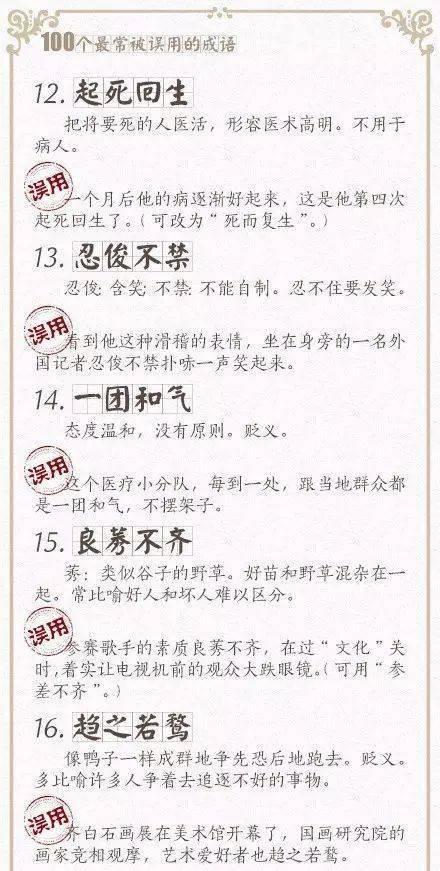 100个最常被误用的成语
12. 起死回生
把将要死的人医活，形容医术高明。不用于
病人。
误用
一个月后他的病逐渐好起来，这是他第四次
起死回生了。（可改为“死而复生”。）
13. 忍俊不禁
忍俊：含笑；不禁：不能自制。忍不住要发笑。
误用
看到他这种滑稽的表情，坐在身旁的一名外
国记者忍俊不禁扑哧一声笑起来。
14. 一团和气
态度温和，没有原则。贬义。
误用
这个医疗小分队，每到一处，跟当地群众都
是一团和气，不摆架子。
15. 良莠不齐
莠：类似谷子的野草。好苗和野草混杂在一
起。常比喻好人和坏人难以区分。
误用
参赛歌手的素质良莠不齐，在过“文化”关
时，着实让电视机前的观众大跌眼镜。（可用“参
差不齐”。）
16. 趋之若鹜
像鸭子一样成群地争先恐后地跑去。贬义。
多比喻许多人争着去追逐不好的事物。
误用
齐白石画展在美术馆开幕了，国画研究院的
画家竞相观摩，艺术爱好者也趋之若鹜。